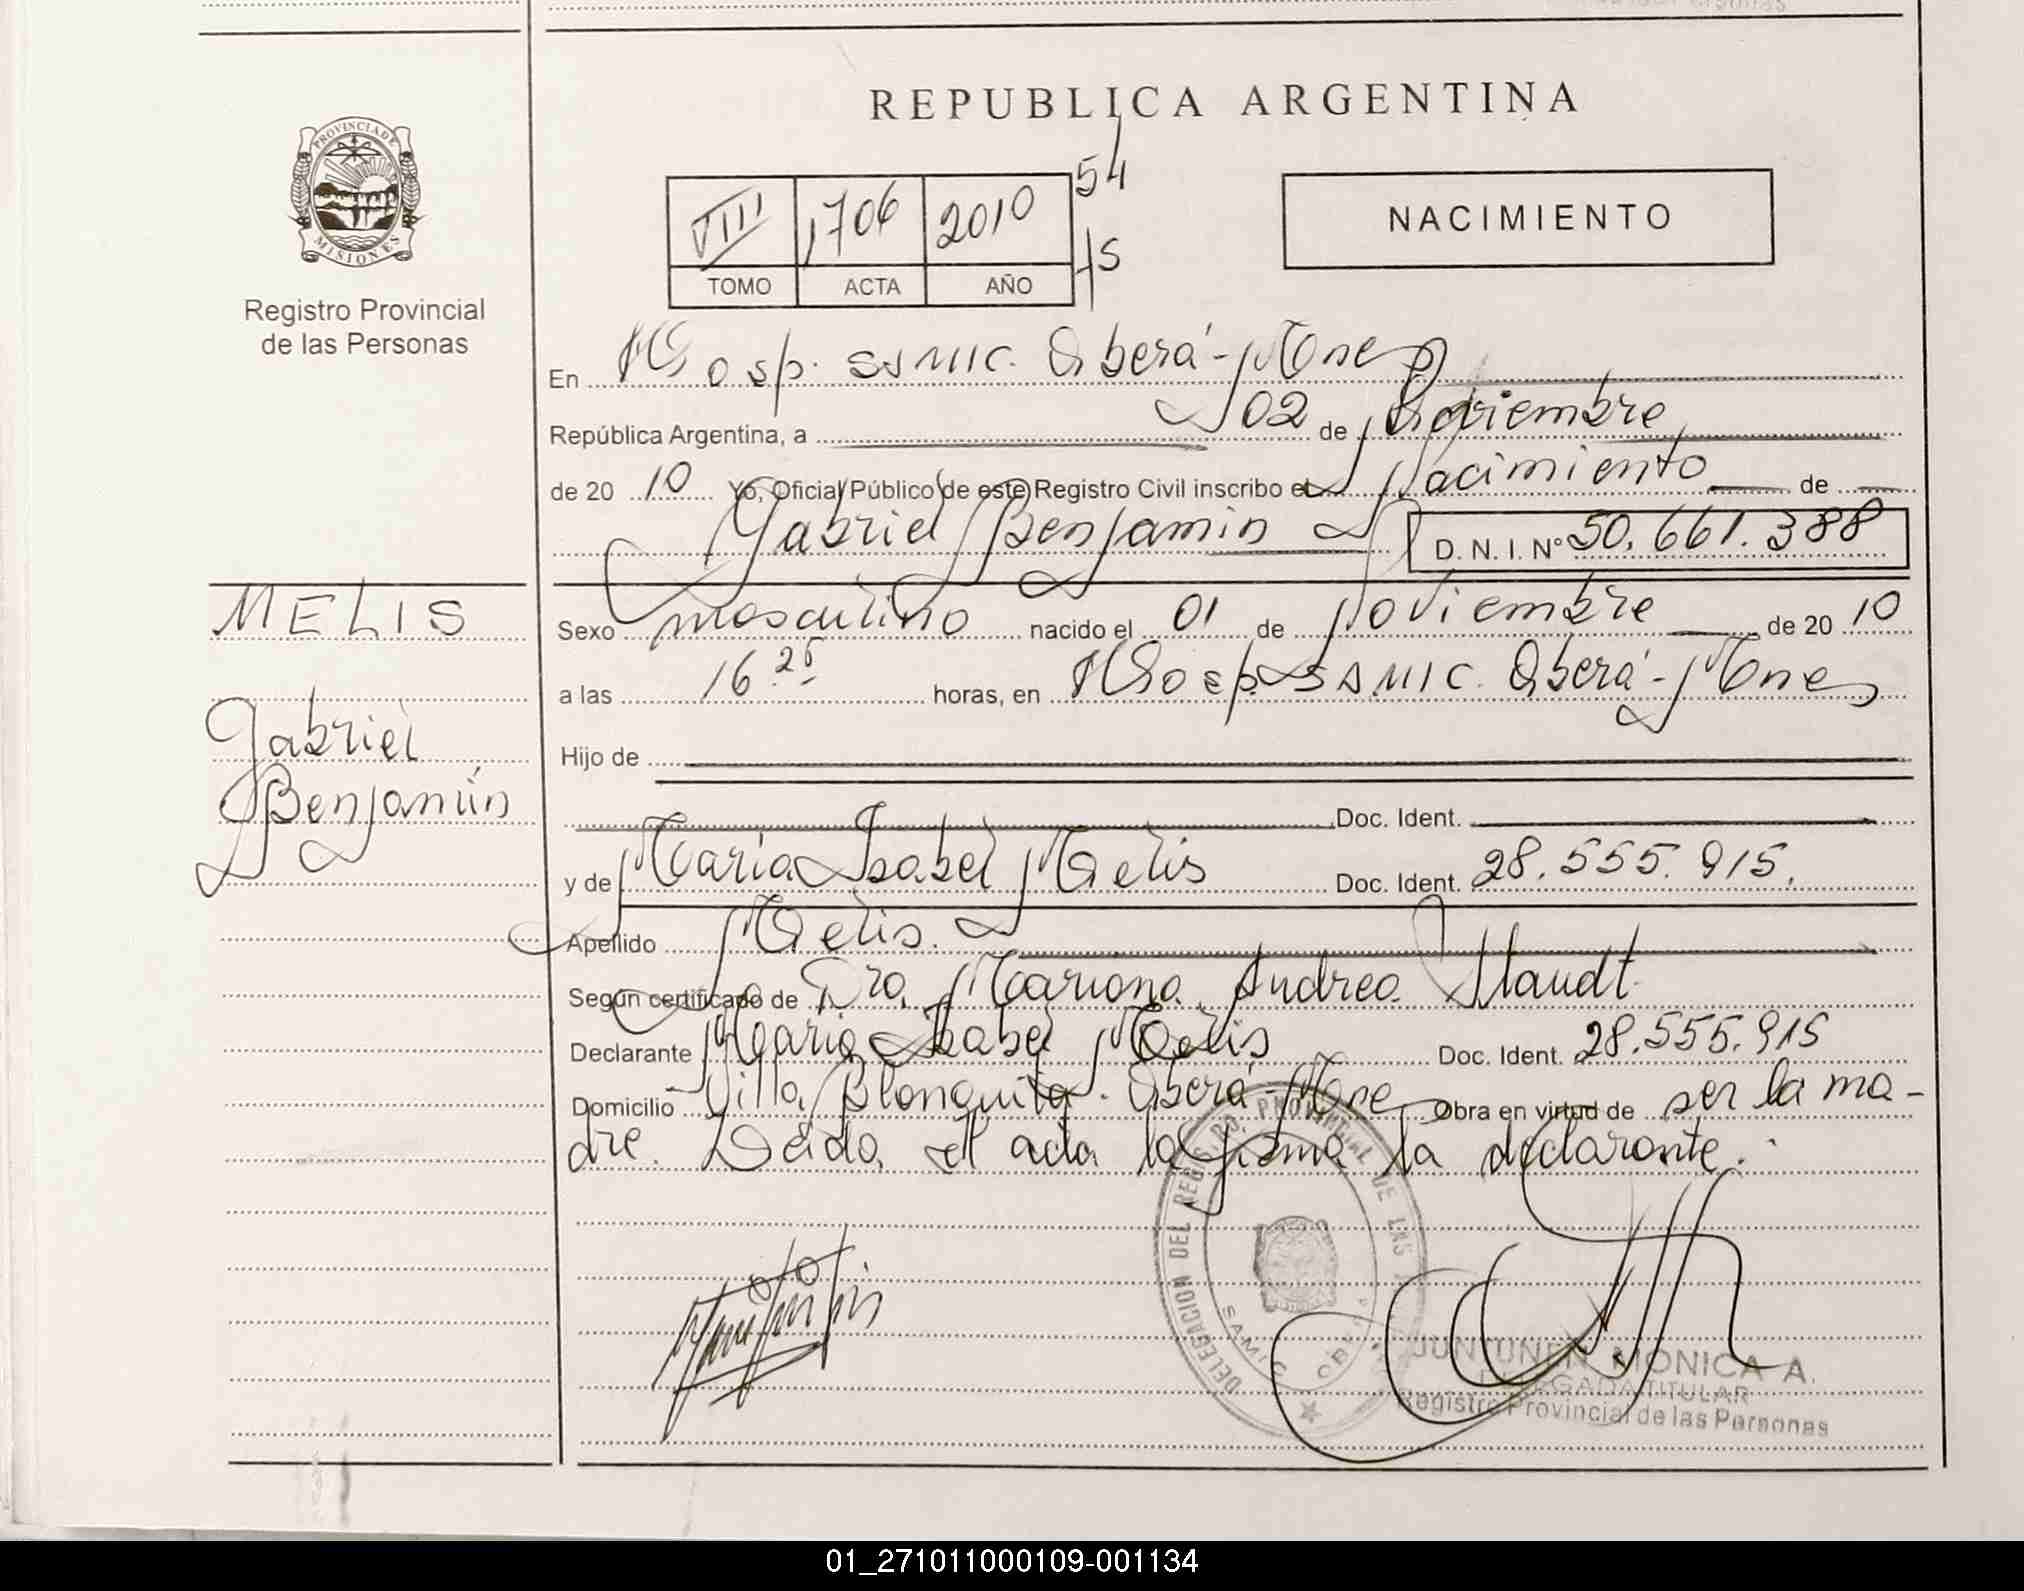 REPUBLICA ARGENTINA
PROVINCIA DE MISIONES
Registro Provincial
de las Personas
VIII 1706 2010 54
45
TOMO ACTA AÑO
NACIMIENTO
En Hosp. SAMIC. Oberá - Mnes
República Argentina, a 02 de Noviembre
de 20 10 Yo, Oficial Público de este Registro Civil inscribo el Nacimiento de
Gabriel Benjamin D. N. I. Nº 50.661.388
MELIS
Gabriel
Benjamín
Sexo masculino nacido el 01 de Noviembre de 20 10
a las 16 25 horas, en Hosp. SAMIC. Oberá - Mnes
Hijo de
Doc. Ident.
y de María Isabel Melis Doc. Ident. 28.555.915.
Apellido Melis.
Según certificado de Dra. Mariana Andrea Staudt
Declarante María Isabel Melis Doc. Ident. 28.555.915
Domicilio Villa Blanquita. Oberá - Mnes Obra en virtud de ser la ma-
dre. Leida el acta la firma la declarante.
DELEGACION DEL REGISTRO PROVINCIAL DE LAS
SAMIC OBERA
JUNTUNEN MONICA A.
DELEGADA TITULAR
Registro Provincial de las Personas
01_271011000109-001134